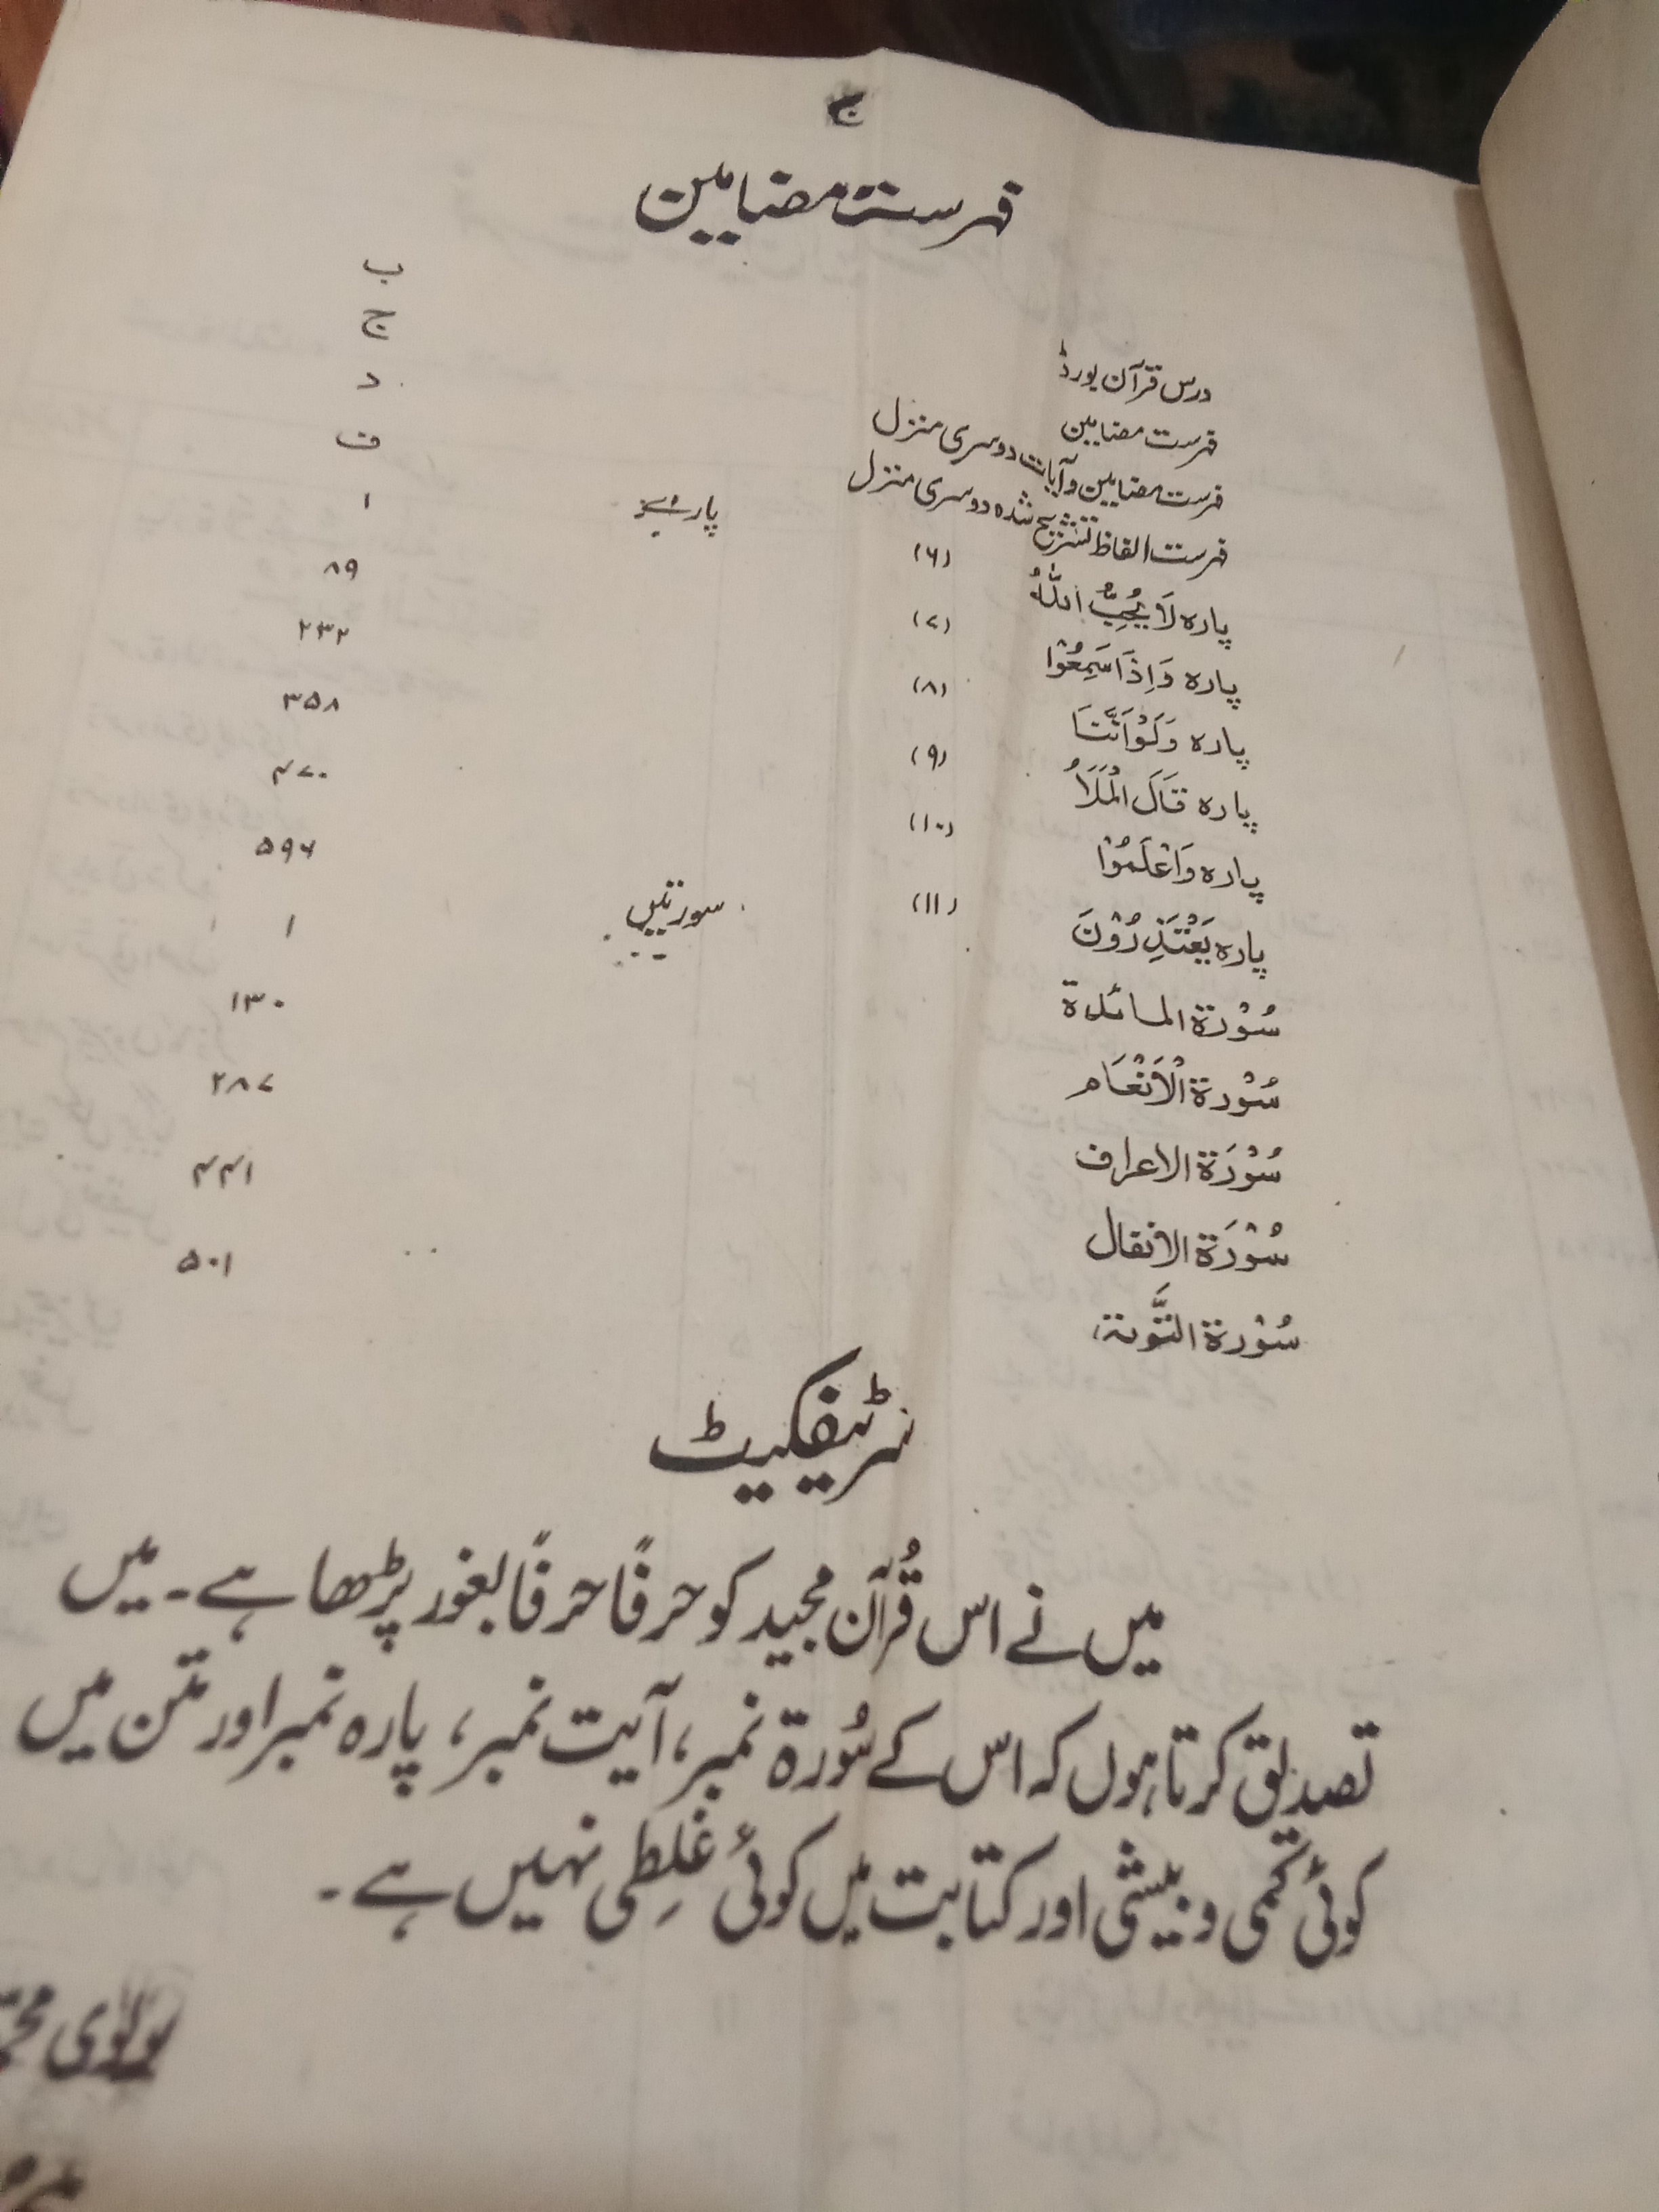 ج
فہرست مضامین
درس قرآن بورڈ ب
فہرست مضامین ج
فہرست مضامین و آیات دوسری منزل د
فہرست الفاظ تشریح شدہ دوسری منزل ف
پارے
پارہ لَا يُحِبُّ اللّٰهُ (۶) ۱
پارہ وَاِذَا سَمِعُوْا (۷) ۸۹
پارہ وَلَوْ اَنَّنَا (۸) ۲۳۲
پارہ قَالَ الْمَلَاُ (۹) ۳۵۸
پارہ وَاعْلَمُوْا (۱۰) ۴۷۰
پارہ يَعْتَذِرُوْنَ (۱۱) ۵۹۶
سورتیں
سُوْرۃ المائدۃ ۱
سُوْرۃ الْاَنْعَام ۱۳۰
سُوْرَۃ الاعراف ۲۸۷
سُوْرَۃ الانفال ۴۴۱
سُوْرۃ التَّوبۃ ۵۰۱
سرٹیفکیٹ
میں نے اس قُرآن مجید کو حرفًا حرفًا بغور پڑھا ہے۔ میں
تصدیق کرتا ہوں کہ اس کے سُورۃ نمبر، آیت نمبر، پارہ نمبر اور متن میں
کوئی کمی و بیشی اور کتابت میں کوئی غلِطی نہیں ہے۔
مولوی